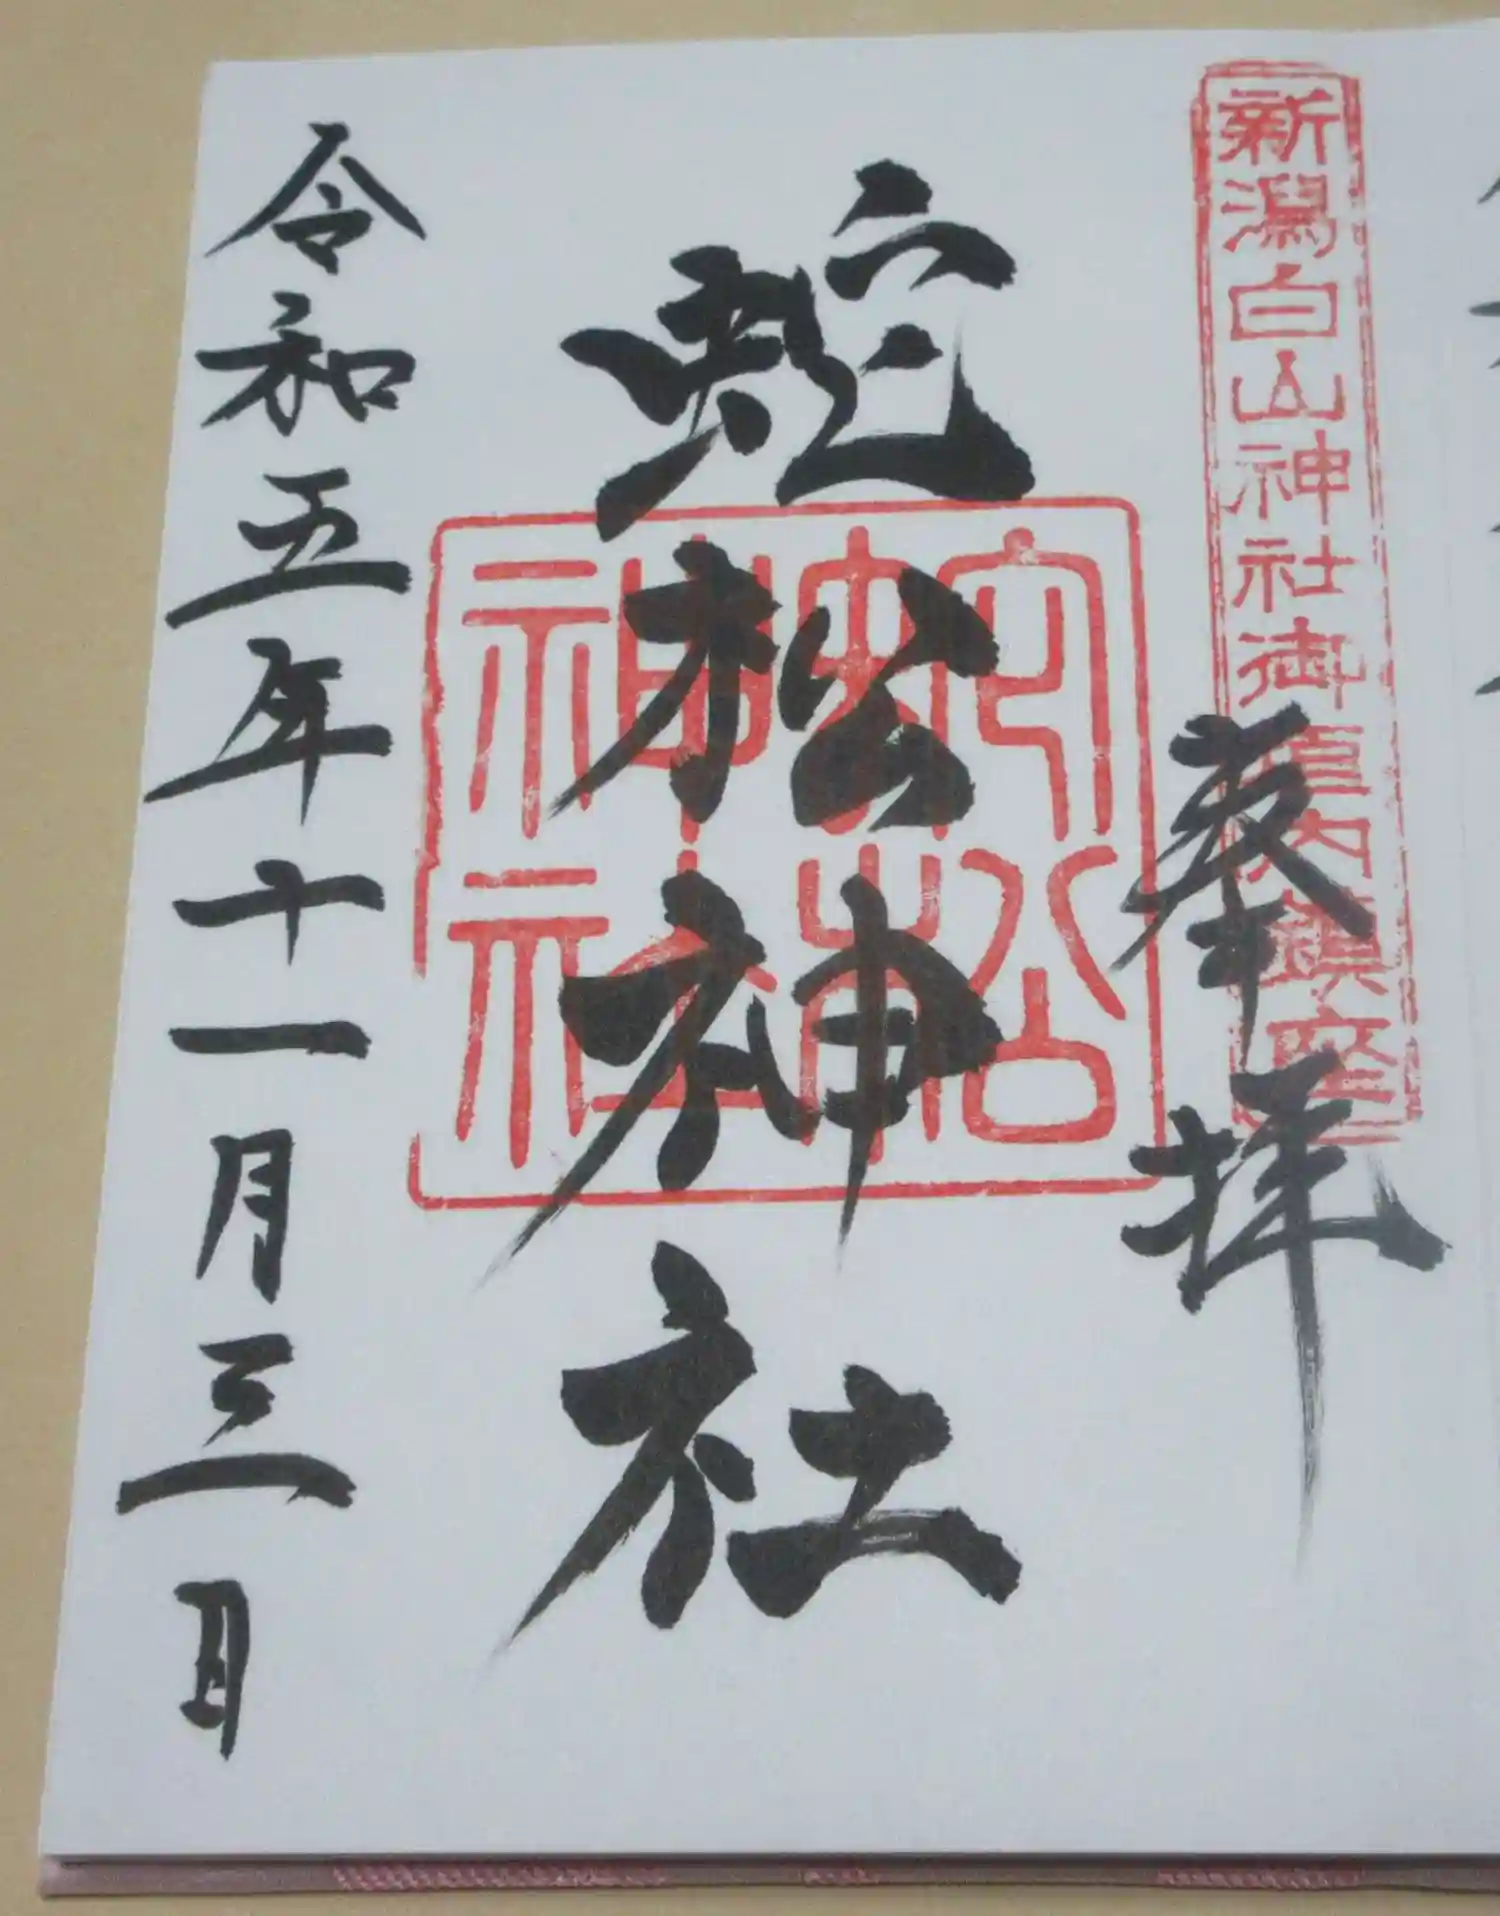 新潟白山神社御垣内鎮座
奉拝
蛇松神社
蛇松
神社
令和五年十一月三日